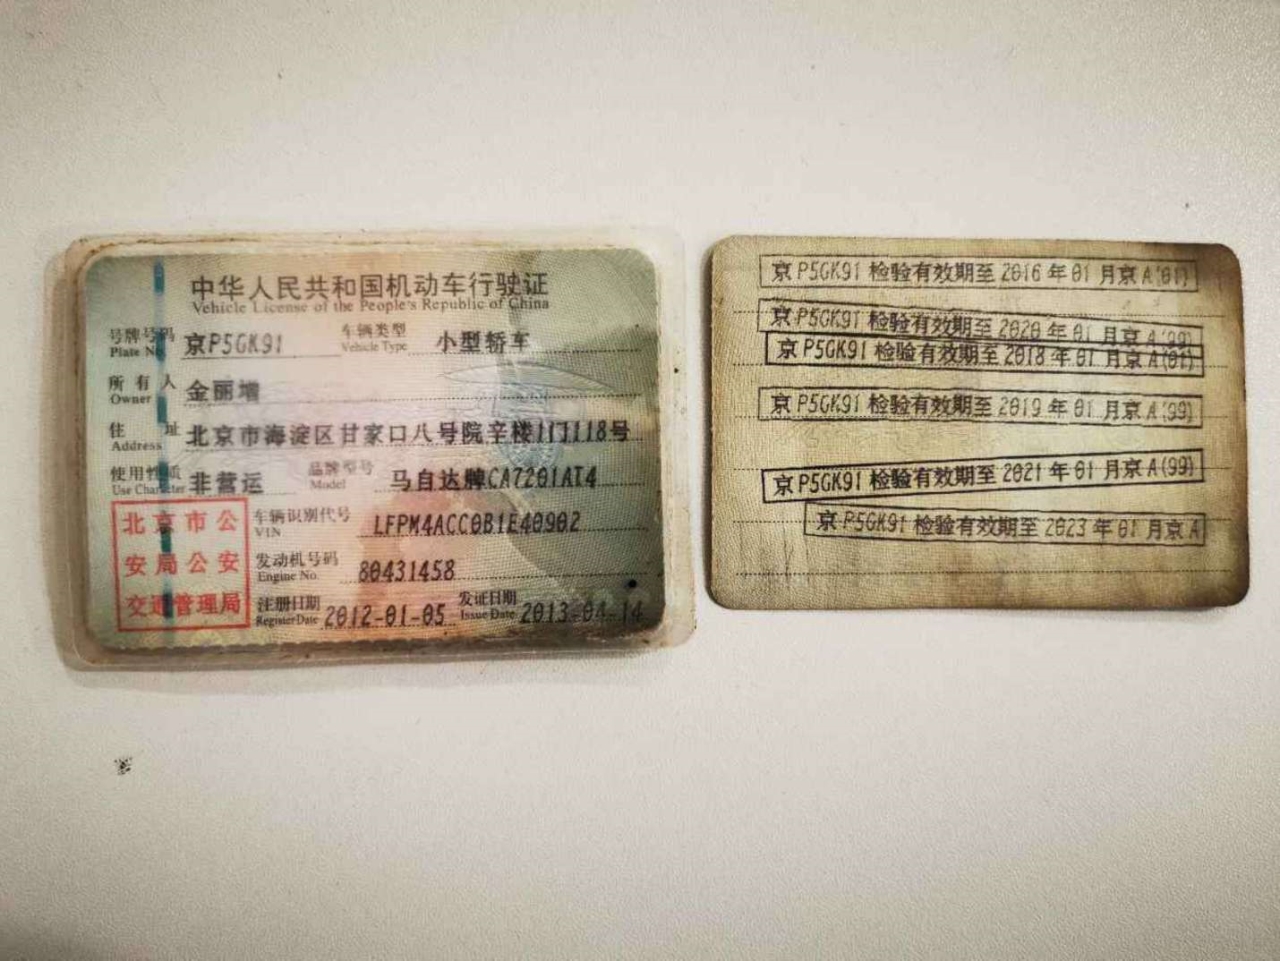 中华人民共和国机动车行驶证
Vehicle License of the People's Republic of China
号牌号码 京P5GK91 车辆类型 小型轿车
Plate No. Vehicle Type
所有人 金丽增
Owner
住址 北京市海淀区甘家口八号院辛楼1门118号
Address
使用性质 非营运 品牌型号 马自达牌CA7201AT4
Use Character Model
北京市公
安局公安
交通管理局
车辆识别代号 LFPM4ACC0B1E40902
VIN
发动机号码 80431458
Engine No.
注册日期 2012-01-05 发证日期 2013-04-14
Register Date Issue Date
京P5GK91 检验有效期至 2016年01月京A(01)
京P5GK91 检验有效期至 2020年01月京A(99)
京P5GK91 检验有效期至 2018年01月京A(01)
京P5GK91 检验有效期至 2019年01月京A(99)
京P5GK91 检验有效期至 2021年01月京A(99)
京P5GK91 检验有效期至 2023年01月京A